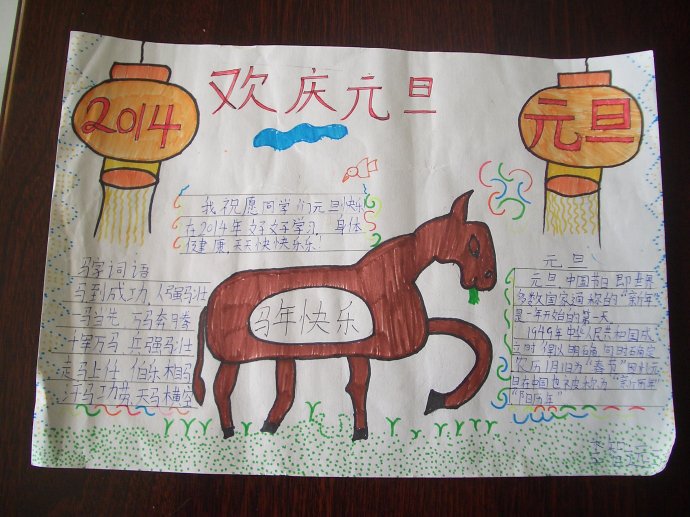 欢庆元旦
2014
元旦
我祝愿同学们元旦快乐
在2014年好好学习，身体
健康，天天快快乐乐！
马字词语
马到成功，人强马壮
一马当先 万马奔腾
千军万马 兵强马壮
走马上任 伯乐相马
汗马功劳，天马横空
马年快乐
元旦
元旦，中国节日 即世界
多数国家通称的“新年”
是一年开始的第一天
1949年中华人民共和国成
农历1月1日为“春节”因此元
旦在中国也被称为“新历年”
“阳历年”